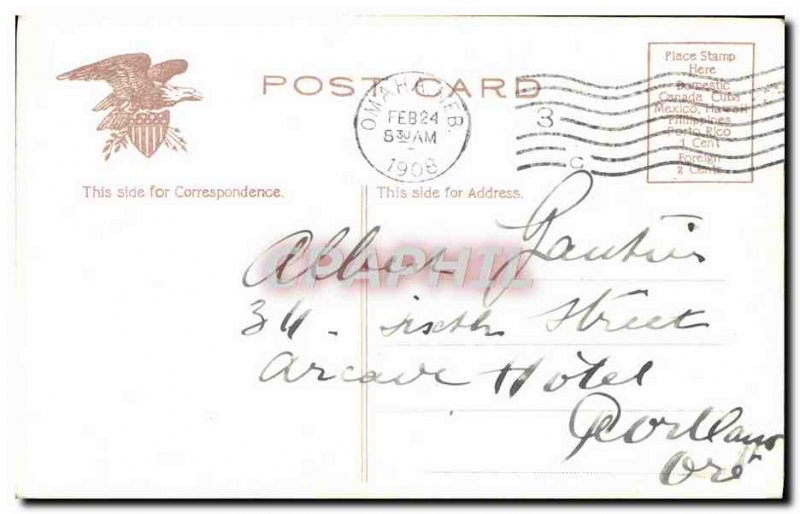 POST CARD
OMAHA, NEB.
FEB 24
8 30 AM
1908
3
C
Place Stamp
Here
Domestic
Canada, Cuba
Mexico, Hawaii
Philippines
Porto Rico
1 Cent
Foreign
2 Cents
This side for Correspondence.
This side for Address.
Albert Gautier
CPAPHIL
34 - sixth Street
Arcade Hotel
Portland
Ore